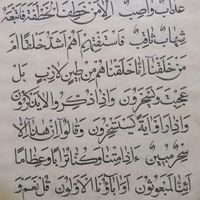 عَذَابٌ وَاصِبٌ اِلَّا مَنْ خَطِفَ الْخَطْفَةَ فَاَتْبَعَهُ
شِهَابٌ ثَاقِبٌ فَاسْتَفْتِهِمْ اَهُمْ اَشَدُّ خَلْقًا اَمْ
مَنْ خَلَقْنَا اِنَّا خَلَقْنَاهُمْ مِنْ طِينٍ لَازِبٍ بَلْ
عَجِبْتَ وَيَسْخَرُونَ وَاِذَا ذُكِّرُوا لَا يَذْكُرُونَ
وَاِذَا رَاَوْا اٰيَةً يَسْتَسْخِرُونَ وَقَالُوا اِنْ هٰذَا اِلَّا
سِحْرٌ مُبِينٌ ءَاِذَا مِتْنَا وَكُنَّا تُرَابًا وَعِظَامًا
ءَاِنَّا لَمَبْعُوثُونَ اَوَاٰبَاؤُنَا الْاَوَّلُونَ قُلْ نَعَمْ وَ